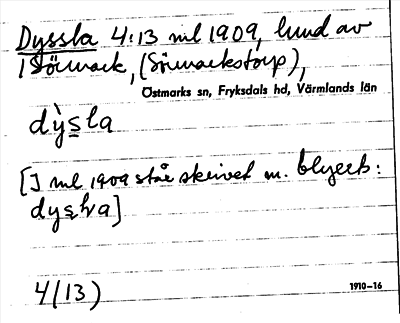 Dyssla 4:13 ml 1909, lund av
1 Sörmark, (Sörmarkstorp),
Östmarks sn, Fryksdals hd, Värmlands län
dỳsla
[I ml 1909 står skrivet m. blyerts:
dysla]
4(13)
1910-16